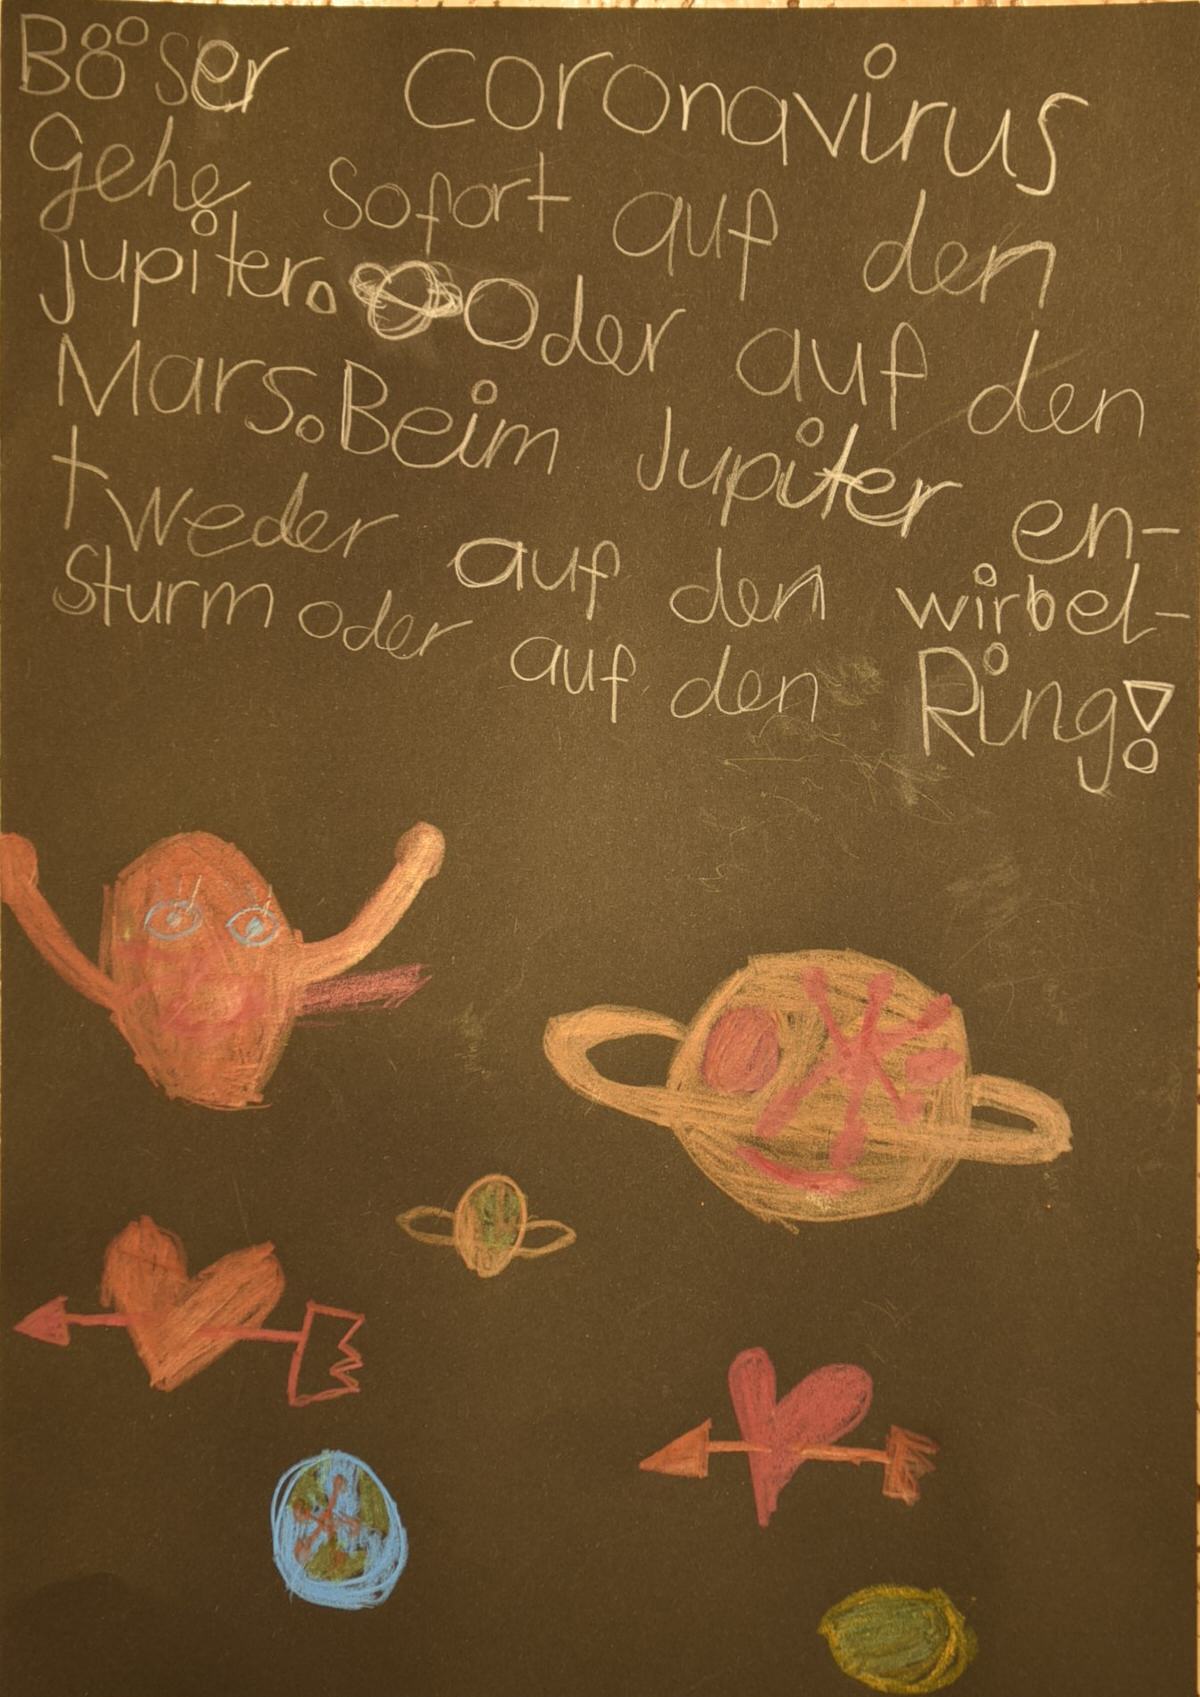 Böser Coronavirus
Gehe Sofort auf den
jupiter. Oder auf den
Mars. Beim Jupiter en-
tweder auf den wirbel-
Sturm oder auf den Ring!